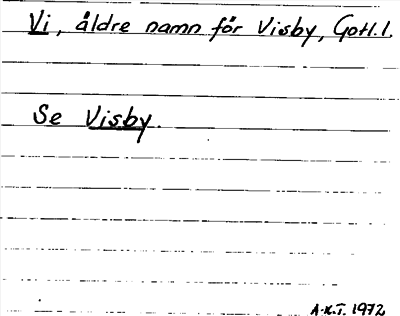 Vi, äldre namn för Visby, Gotl.l.
Se Visby.
A-K.T. 1972